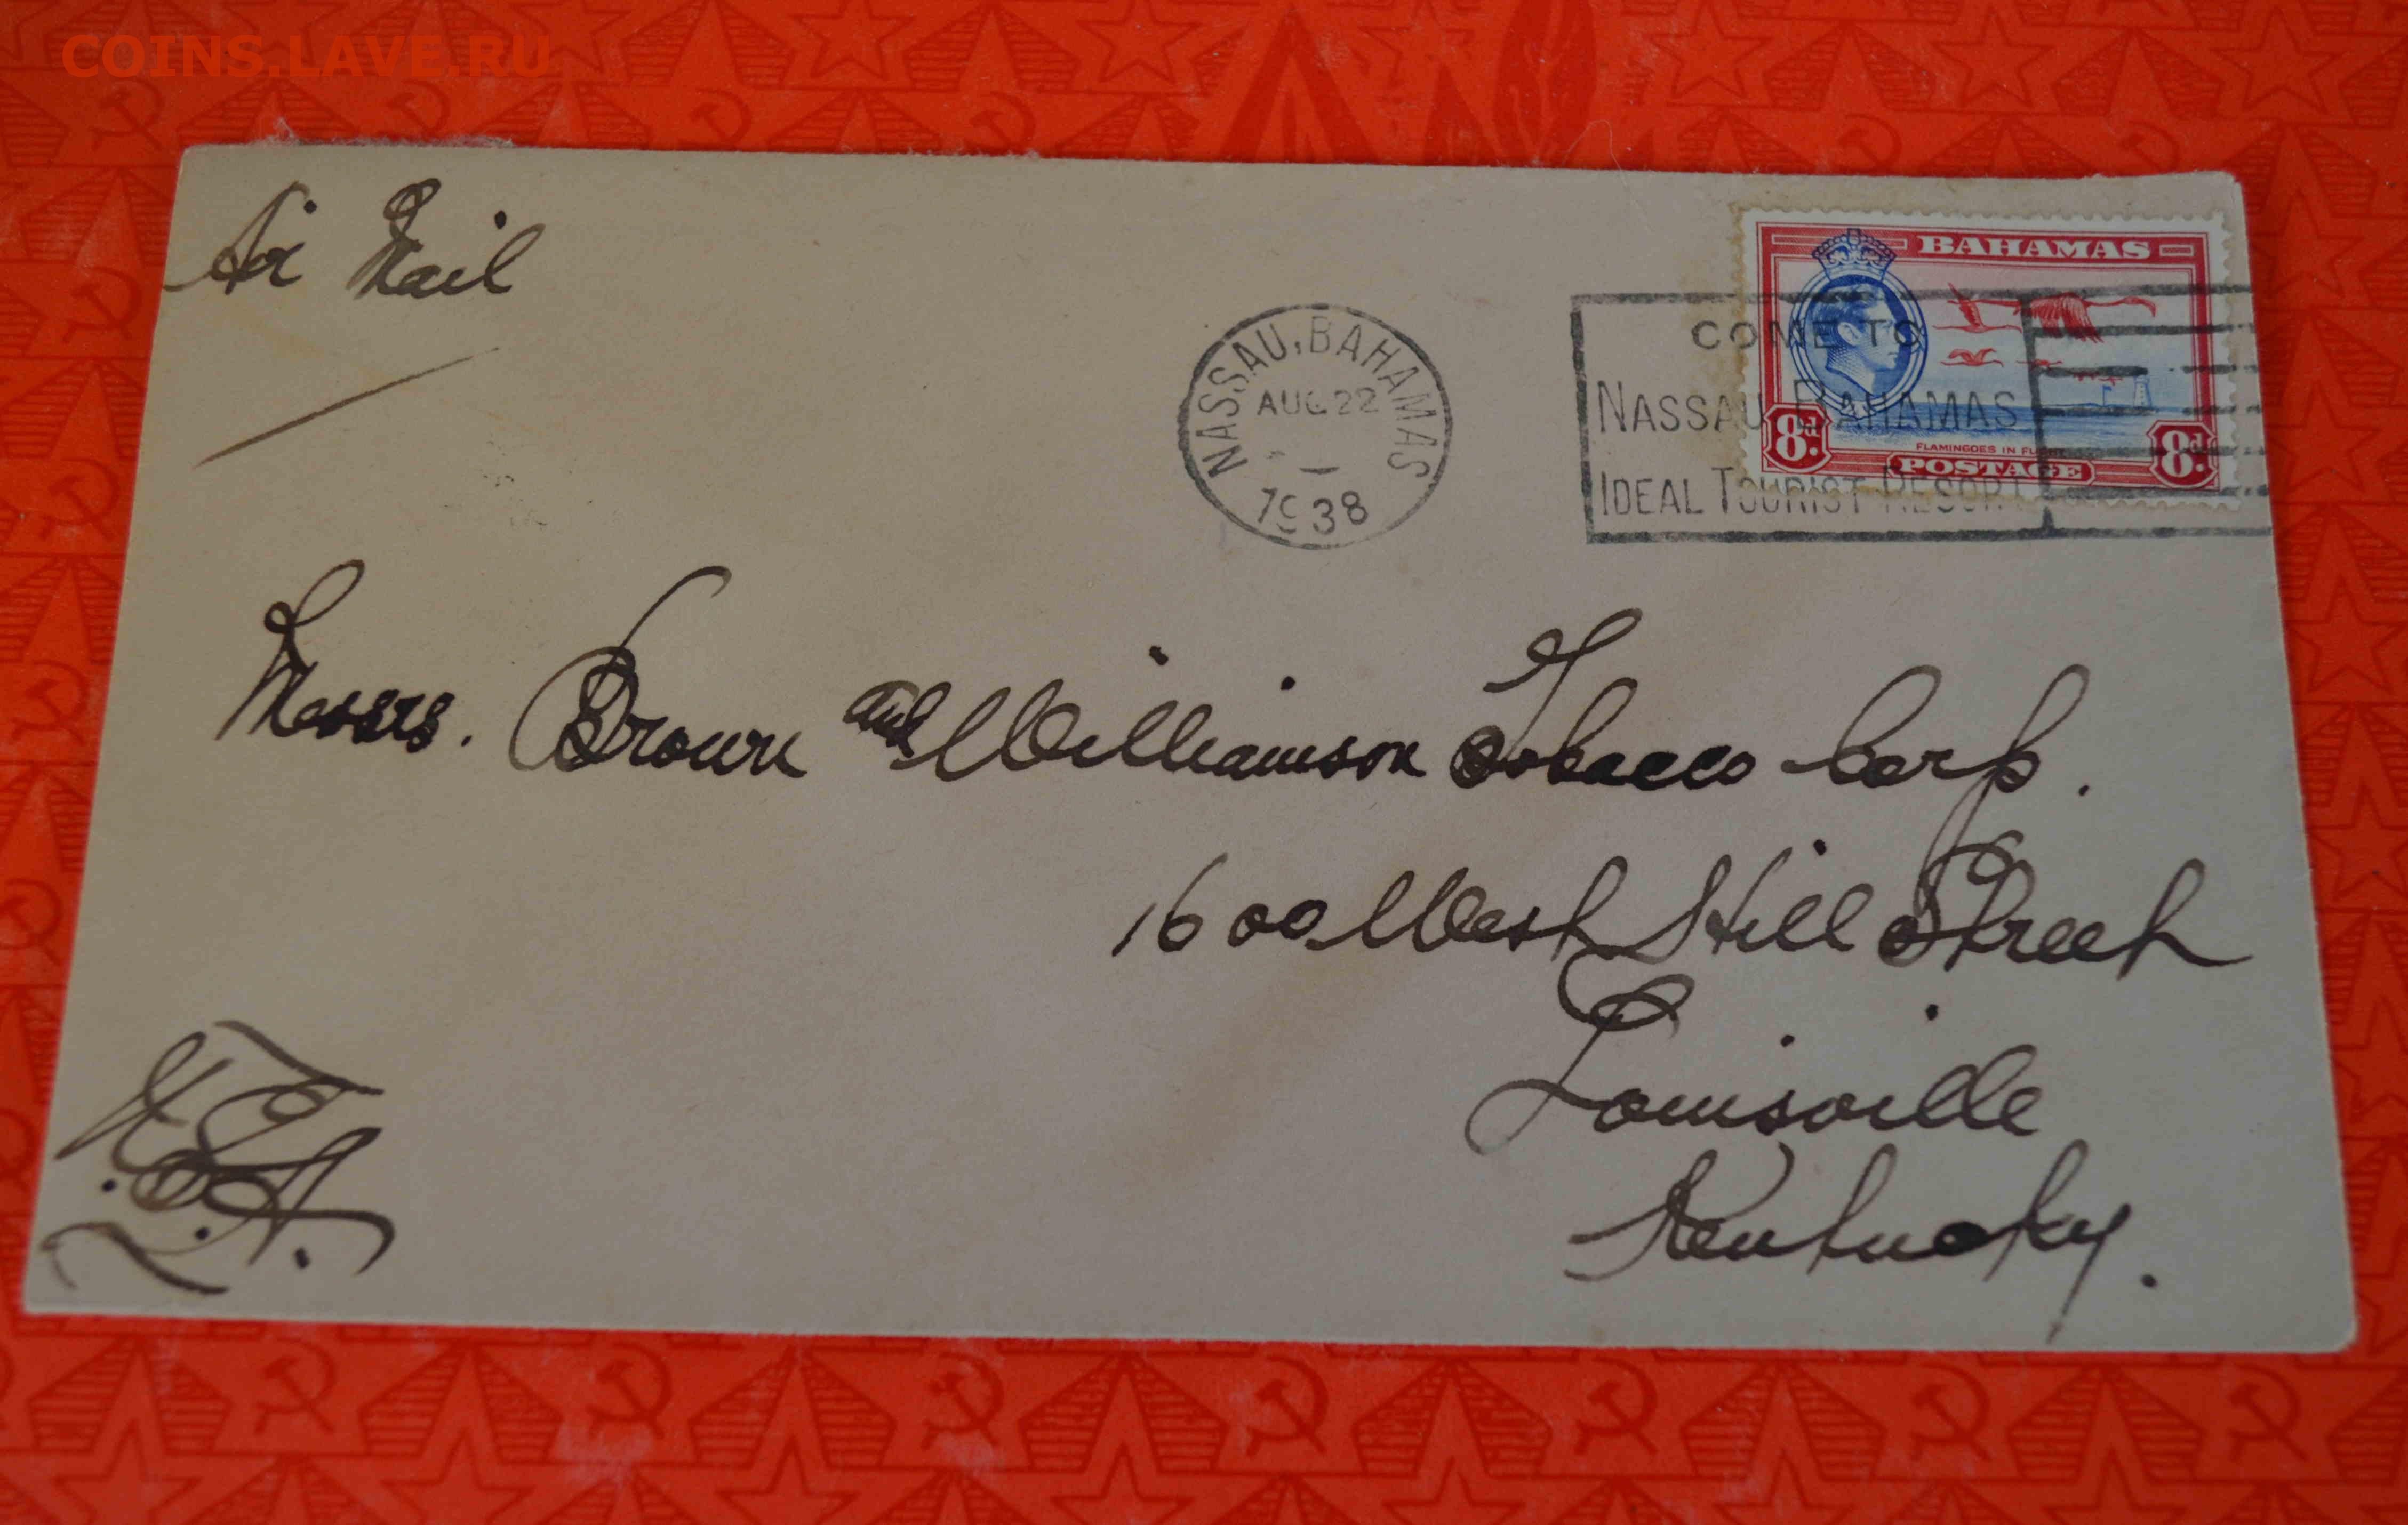 COINS.LAVE.RU
Air Mail
BAHAMAS
NASSAU, BAHAMAS
AUG 22
1938
COME TO
NASSAU BAHAMAS
IDEAL TOURIST RESORT
8d. 8d.
FLAMINGOES IN FLIGHT
POSTAGE
Messrs. Brown and Williamson Tobacco Corp.
1600 West Hill Street
Louisville
Kentucky.
U.S.A.